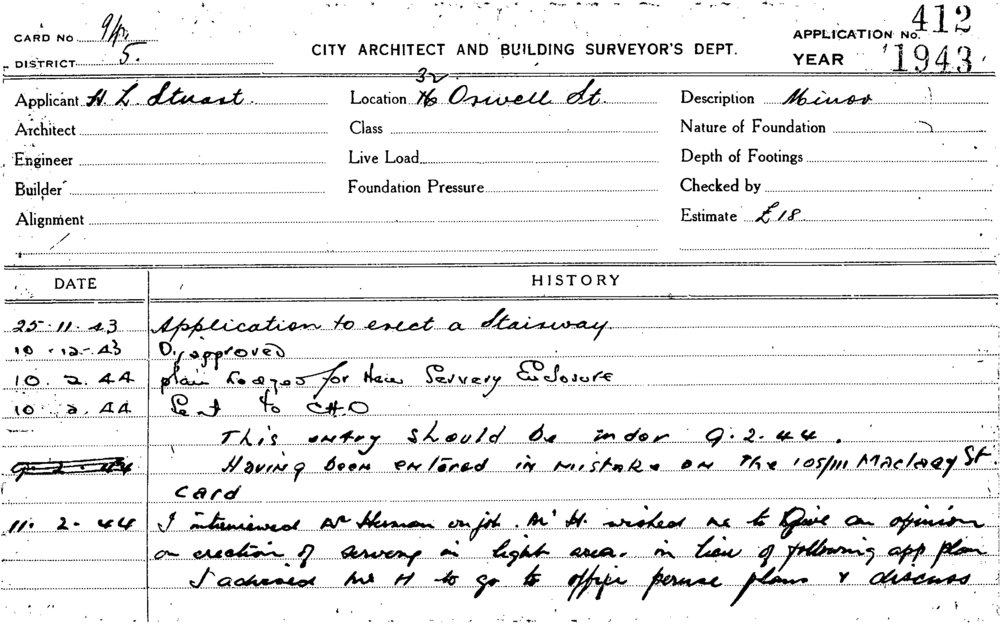 CARD No
DISTRICT 5.
CITY ARCHITECT AND BUILDING SURVEYOR'S DEPT.
APPLICATION No. 412
YEAR 1943
Applicant H. L. Stuart
Location 32 Orwell St.
Description Minor
Architect
Class
Nature of Foundation
Engineer
Live Load
Depth of Footings
Builder
Foundation Pressure
Checked by
Alignment
Estimate £18
DATE HISTORY
25.11.43 Application to erect a Stairway.
10.12.43 Disapproved
10.2.44 plan lodged for New Servery Enclosure
10.2.44 Sent to CHO
This entry should be under 9.2.44.
9.2.44 Having been entered in mistake on the 105/111 Macleay St
card
11.2.44 I interviewed Mr Herman on job. Mr H. wished me to give an opinion
on erection of servery in light area. in lieu of following app plan
I advised Mr H to go to office peruse plans & discuss